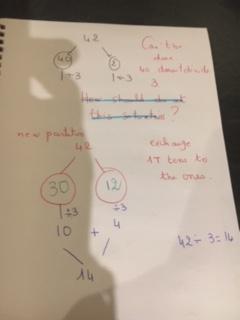 42
40 2
÷3 ÷3
Can't be
done
40 doesn't divide
3
How should do out
this situation?
new partition
42
30 12
÷3 ÷3
10 + 4
14
exchange
1T tens to
the ones.
42 ÷ 3 = 14